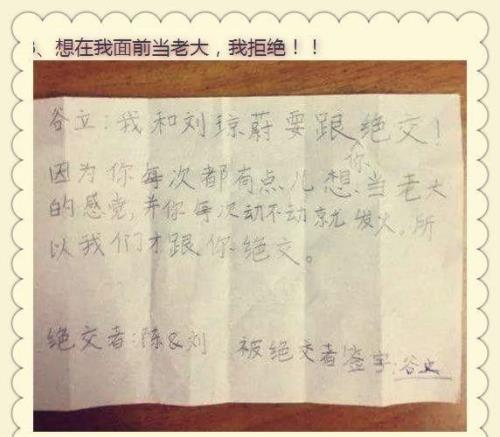 3、想在我面前当老大，我拒绝！！
谷立：我和刘琼蔚要跟绝交！
你
因为你每次都有点儿想当老大
的感觉，并你每次动不动就发火，所
以我们才跟你绝交。
绝交者：陈&刘 被绝交者签字：谷立